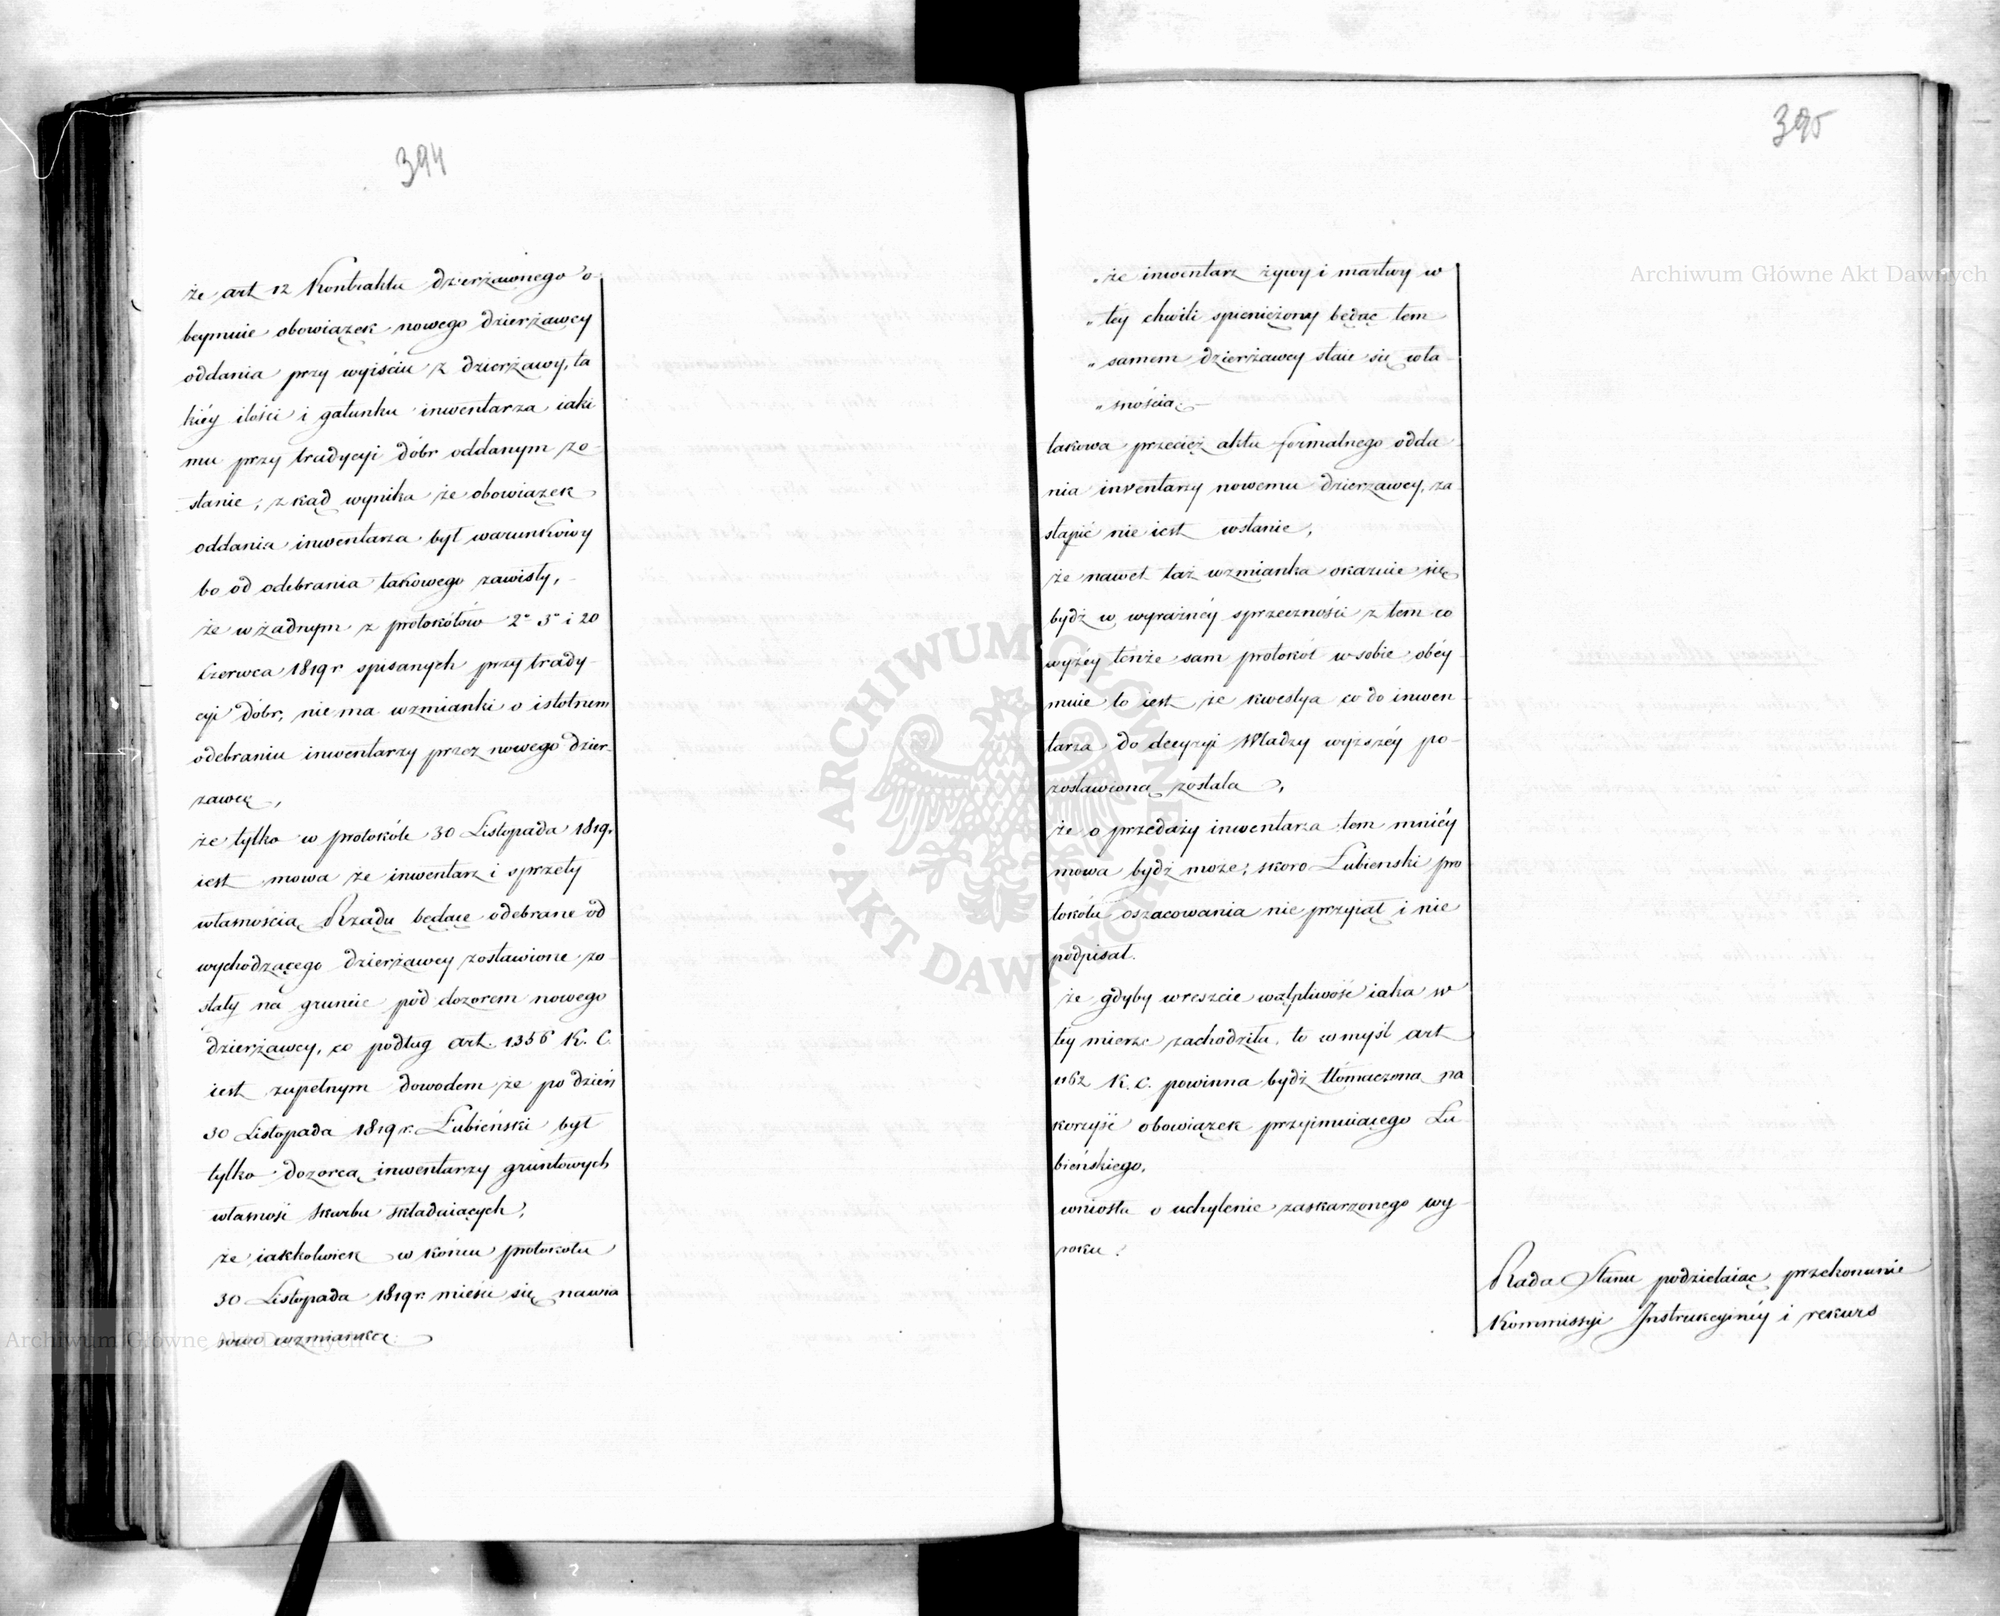 394
że art 12 Kontraktu dzierżawnego o-
beymuie obowiązek nowego dzierżawcy
oddania przy wyiściu z dzierżawy, ta
kiéy ilości i gatunku inwentarza iaki
mu przy tradycyi dóbr oddanym zo-
stanie; zkąd wynika że obowiązek
oddania inwentarza był warunkowy
bo od odebrania takowego zawisły,
że w żadnym z protokółów 2° 3° i 20
Czerwca 1819 r spisanych przy trady-
cyi dóbr, nie ma wzmianki o istotnem
odebraniu inwentarzy przez nowego dzier-
zawcę,
że tylko w protokóle 30 Listopada 1819 r
iest mowa że inwentarz i sprzęty
własnością Rządu będące odebrane od
wychodzącego dzierżawcy zostawione zo-
stały na gruncie pod dozorem nowego
dzierżawcy, co podług art. 1356 K. C.
iest zupełnym dowodem że po dzień
30 Listopada 1819 r. Łubieński był
tylko dozorcą inwentarzy gruntowych
własność skarbu składaiących,
że iakkolwiek w końcu protokółu
30 Listopada 1819 r. mieści się nawia
sowo wzmianka:
395
„że inwentarz żywy i martwy w
„tey chwili spieniężony będąc tem
„samem dzierżawcy staie się wła-
„snością.
takowa przecież aktu formalnego odda-
nia inwentarzy nowemu dzierzawcy, za
stąpić nie iest wstanie,
że nawet taż wzmianka okazuie się
bydź w wyraźnéy sprzeczności z tem co
wyżéy tenże sam protokół w sobie obéy
muie to iest że kwestya co do inwen-
tarza do decyzyi Władzy wyższéy po-
zostawioną została,
że o przedaży inwentarza tem mniéy
mowa bydź może, skoro Łubienski pro
tokółu oszacowania nie przyiął i nie
podpisał.
że gdyby wreszcie wątpliwość iaka w
tey mierze zachodziła, to w myśl art
1162 K. C. powinna bydź tłómaczona na
korzyść obowiązek przyimuiącego Łu
bieńskiego,
wniosła o uchylenie zaskarzonego wy-
roku.
Rada Stanu podzielaiąc przekonanie
Kommissyi Instrukcyinéy i rekurs
Archiwum Główne Akt Dawnych
Archiwum Główne Akt Dawnych
ARCHIWUM GŁÓWNE · AKT DAWNYCH ·